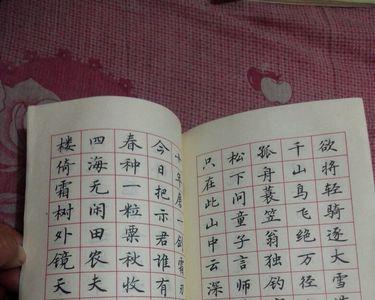 欲将轻骑逐大雪
千山鸟飞绝万径
孤舟蓑笠翁独钓
松下问童子言师
只在此山中云深
十年磨一剑霜
今日把示君谁有
春种一粒粟秋收
四海无闲田农夫
楼倚霜树外镜天